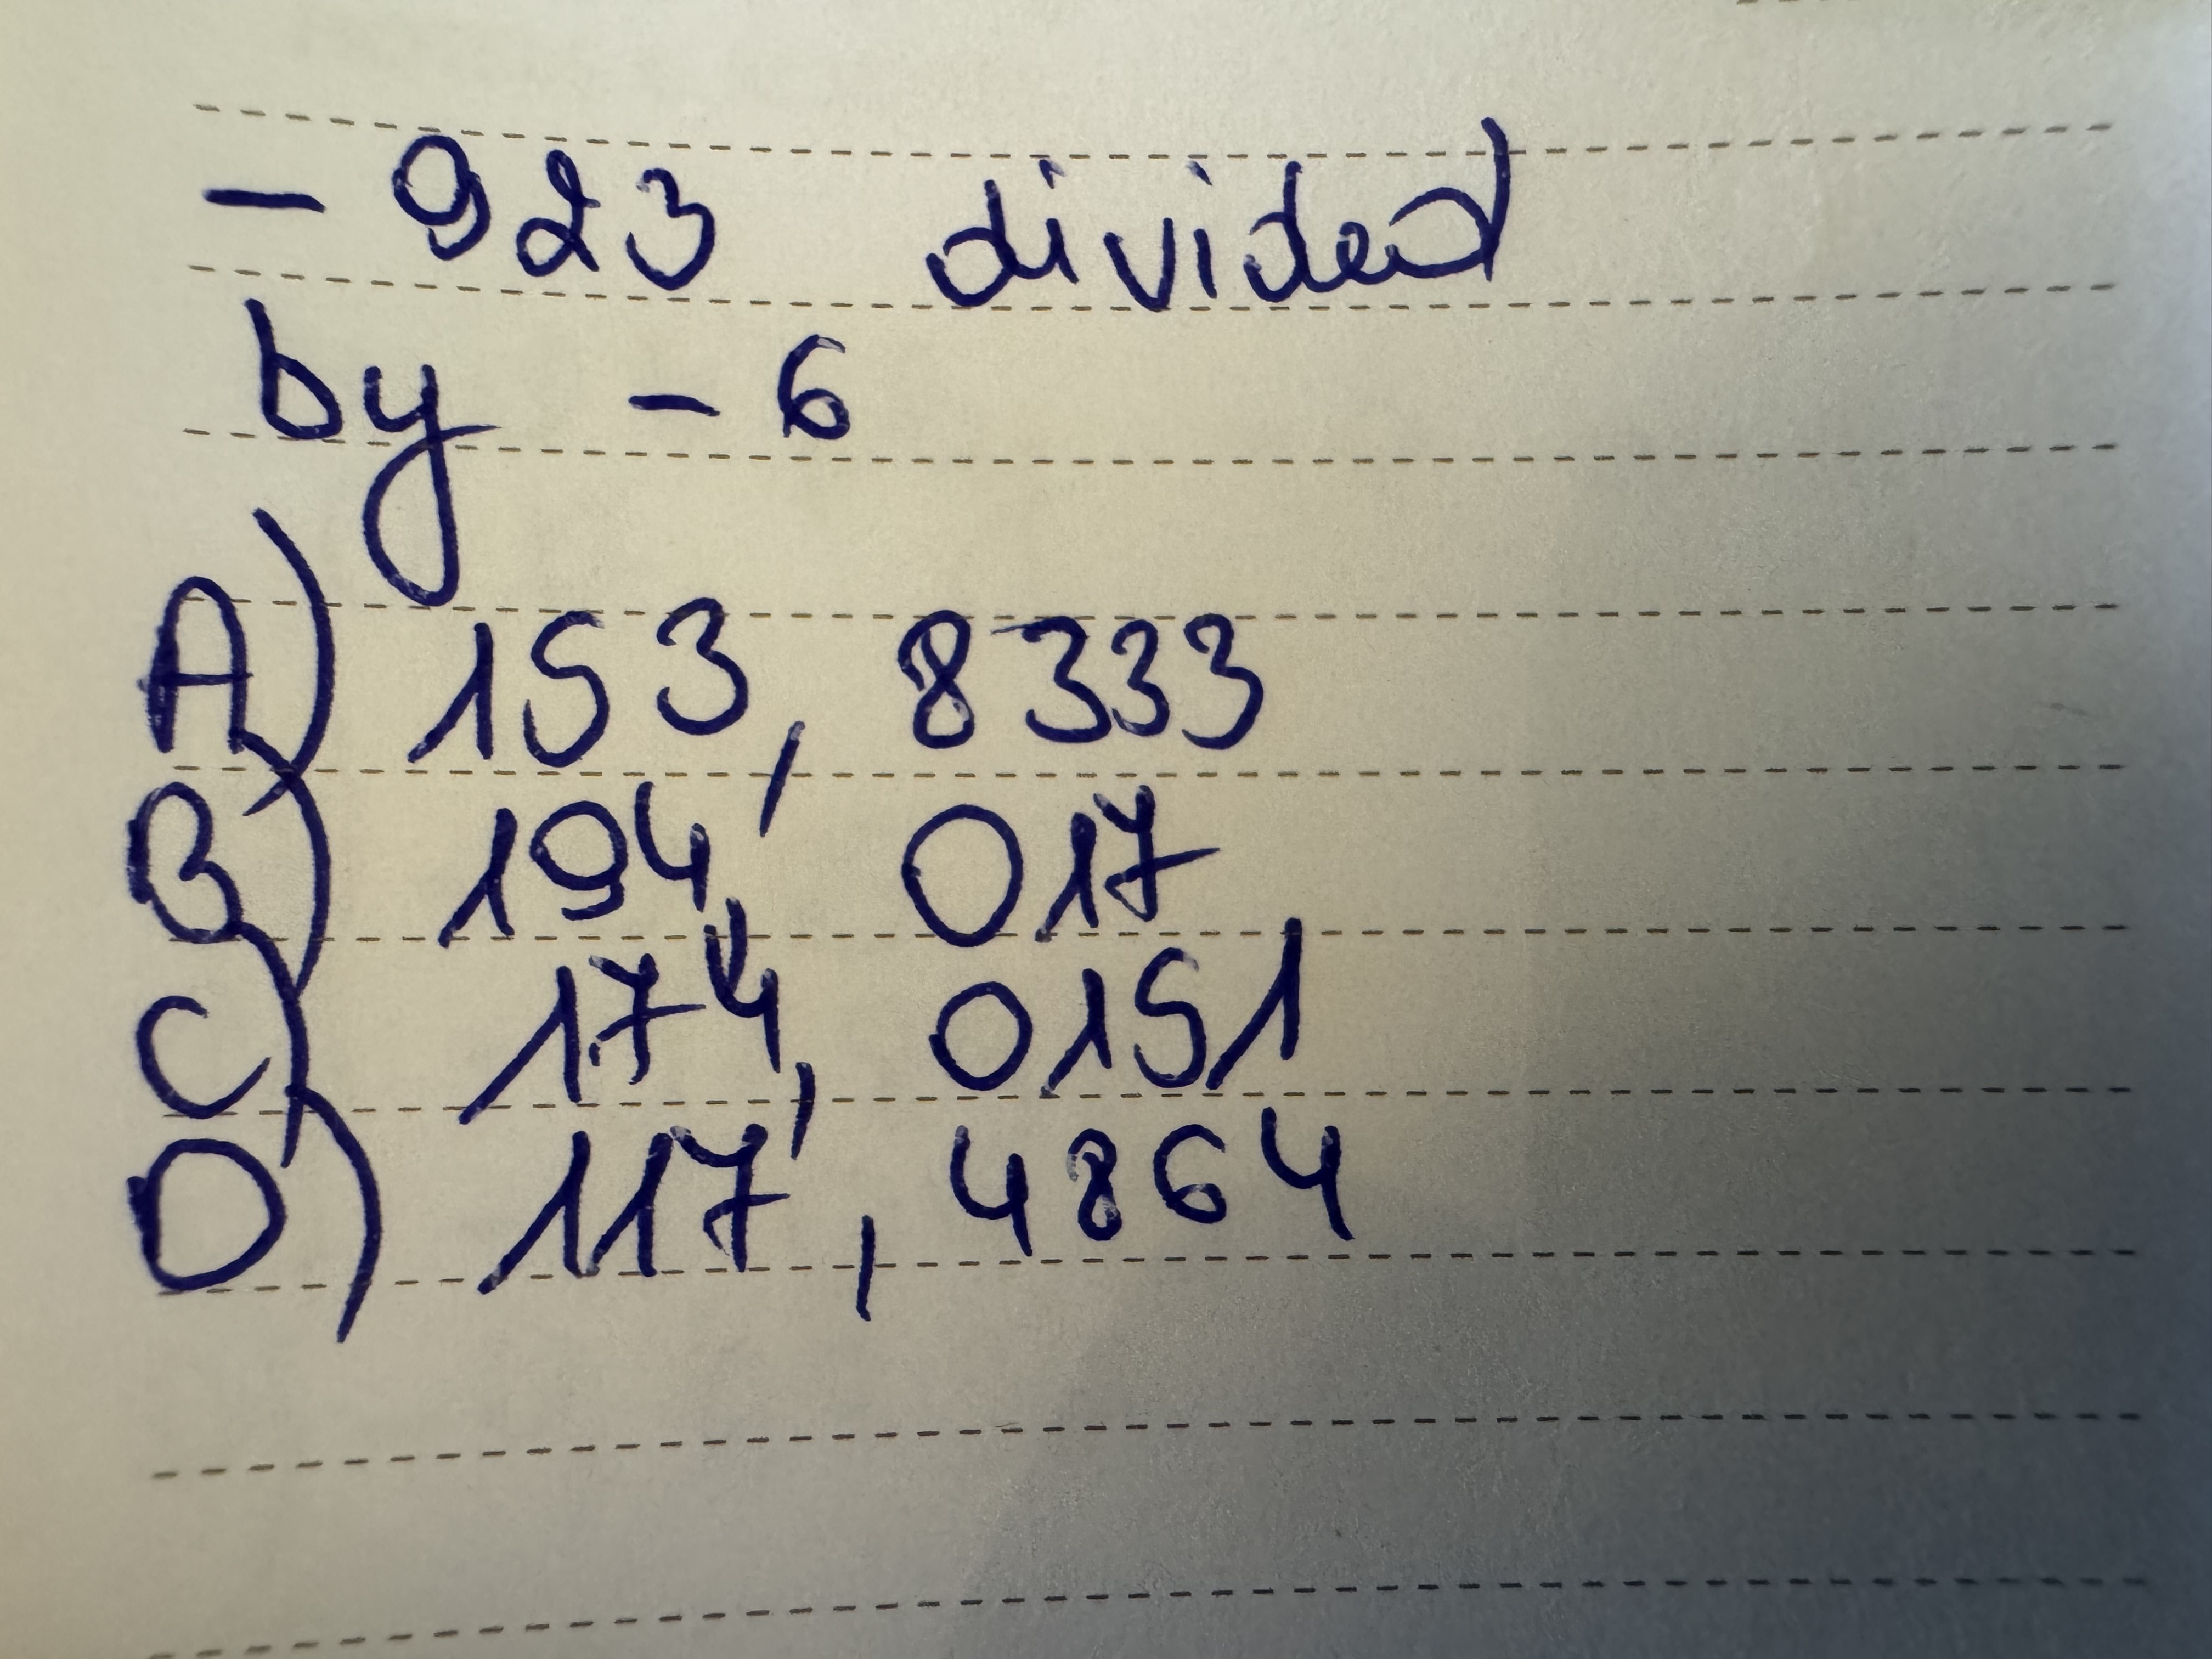 - 923 divided
by - 6
A) 153, 8333
B) 194, 017
C) 174, 0151
D) 117, 4864